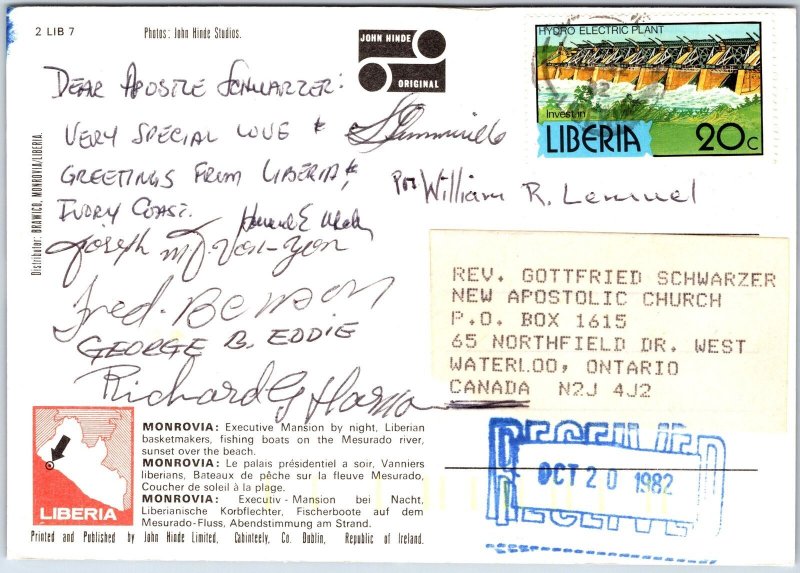 2 LIB 7
Photos: John Hinde Studios.
JOHN HINDE
ORIGINAL
HYDRO ELECTRIC PLANT
Invest in
LIBERIA 20c
DEAR APOSTLE SCHWARZER:
VERY SPECIAL LOVE &
GREETINGS FROM LIBERIA &
IVORY COAST.
William R. Lemuel
Joseph M.
Fred. Benson
GEORGE B. EDDIE
Richard G
Distributor: BRAWICO, MONROVIA/LIBERIA.
REV. GOTTFRIED SCHWARZER
NEW APOSTOLIC CHURCH
P.O. BOX 1615
65 NORTHFIELD DR. WEST
WATERLOO, ONTARIO
CANADA N2J 4J2
RECEIVED
OCT 20 1982
RECEIVE
LIBERIA
MONROVIA: Executive Mansion by night, Liberian
basketmakers, fishing boats on the Mesurado river,
sunset over the beach.
MONROVIA: Le palais présidentiel a soir, Vanniers
liberians, Bateaux de pêche sur la fleuve Mesurado,
Coucher de soleil à la plage.
MONROVIA: Executiv-Mansion bei Nacht,
Liberianische Korbflechter, Fischerboote auf dem
Mesurado-Fluss, Abendstimmung am Strand.
Printed and Published by John Hinde Limited, Cabinteely, Co. Dublin, Republic of Ireland.